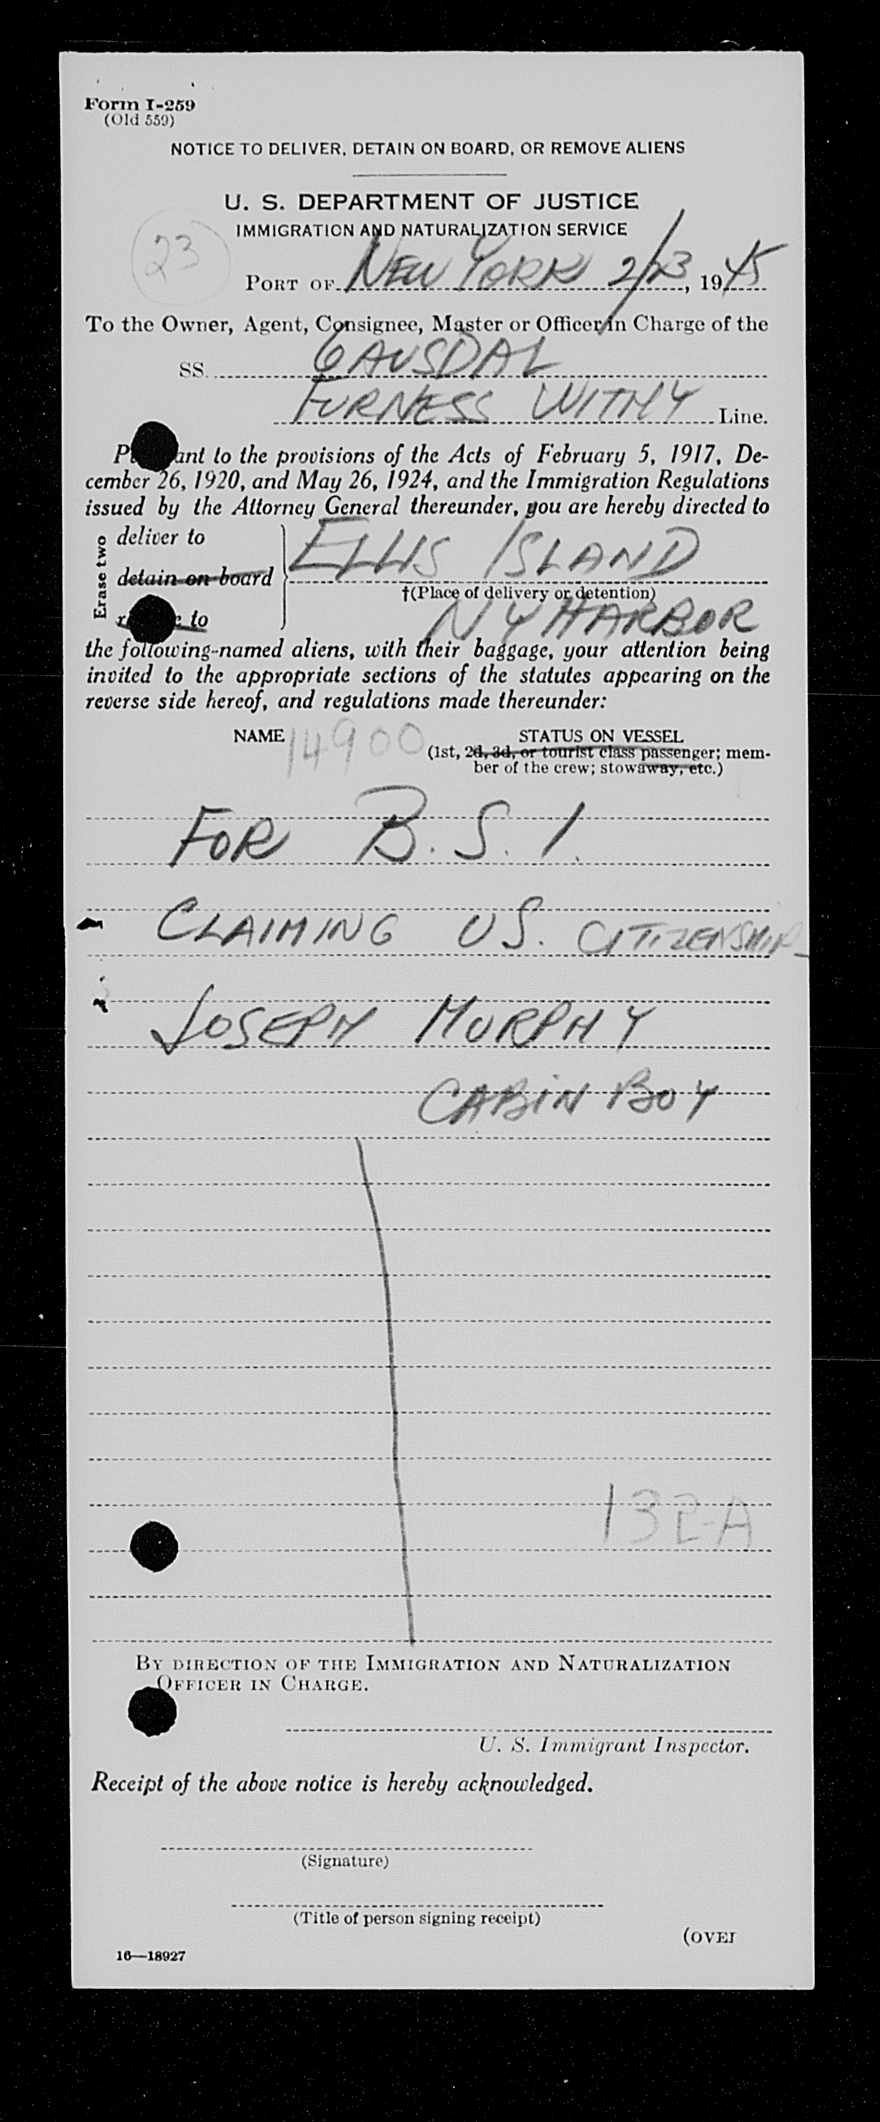 Form I-259
(Old 559)
NOTICE TO DELIVER, DETAIN ON BOARD, OR REMOVE ALIENS
U. S. DEPARTMENT OF JUSTICE
IMMIGRATION AND NATURALIZATION SERVICE
23
PORT OF NEW YORK 2/23, 1945
To the Owner, Agent, Consignee, Master or Officer in Charge of the
SS. GAUSDAL
FURNESS WITHY Line.
P ant to the provisions of the Acts of February 5, 1917, De-
cember 26, 1920, and May 26, 1924, and the Immigration Regulations
issued by the Attorney General thereunder, you are hereby directed to
Erase two
deliver to
detain on board
r e to
ELLIS ISLAND
†(Place of delivery or detention)
N Y HARBOR
the following-named aliens, with their baggage, your attention being
invited to the appropriate sections of the statutes appearing on the
reverse side hereof, and regulations made thereunder:
NAME 14900 STATUS ON VESSEL
(1st, 2d, 3d, or tourist class passenger; mem-
ber of the crew; stowaway, etc.)
FOR B. S. I.
CLAIMING US. CITIZENSHIP
JOSEPH MURPHY
CABIN BOY
132-A
BY DIRECTION OF THE IMMIGRATION AND NATURALIZATION
OFFICER IN CHARGE.
U. S. Immigrant Inspector.
Receipt of the above notice is hereby acknowledged.
(Signature)
(Title of person signing receipt)
(OVER
16—18927